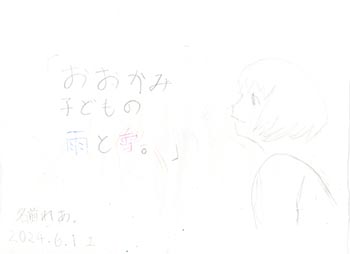 「おおかみ
子どもの
雨と雪。」
名前れあ.
2024.6.12